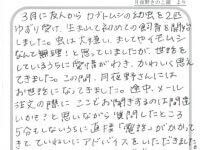 月夜野きのこ園 より
3月に友人からカブトムシの幼虫を2匹
ゆずり受け、生まれて初めての飼育を開始
しました。虫は大嫌い、ましてやイモムシ
なんて無理!と思っていましたが、世話を
しているうちに愛情がわき、かわいく思え
てきました。この間、月夜野さんには
お世話になってきました。途中、メール
注文の際に ここでお聞きするのは間違
いかな?と思いながら質問したところ
5分もしないうちに直接「電話」がかかって
きて、ていねいにアドバイスをいただきました